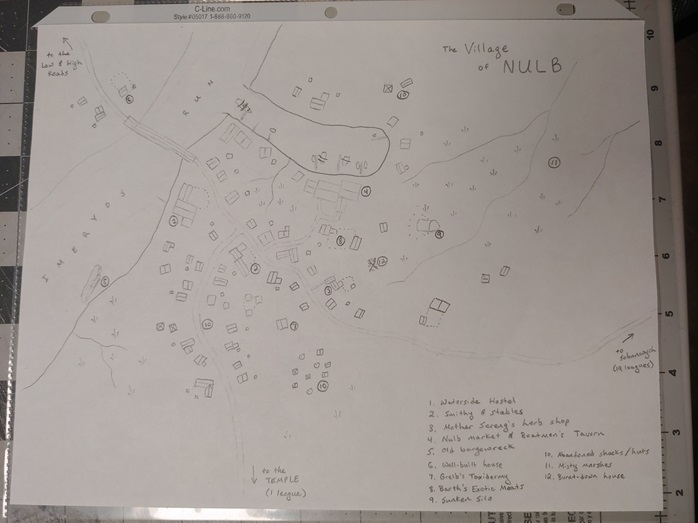 C-Line.com
Style #05017 1-888-860-9170
The Village
of NULB
to the
Low & high
Roads
RUN
IMERYDY
to
(14 leagues)
to the
TEMPLE
(1 league)
1. Waterside Hostel
2. Smithy & stables
3. Mother Screng's herb shop
4. Nulb market & Boatmen's Tavern
5. Old bargewreck
6. Well-built house
7. Grelb's Taxidermy
8. Barth's Exotic Meats
9. Sunken Silo
10. Abandoned shacks/huts
11. Misty marshes
12. Burnt-down house
10
9
8
7
6
5
4
3
2